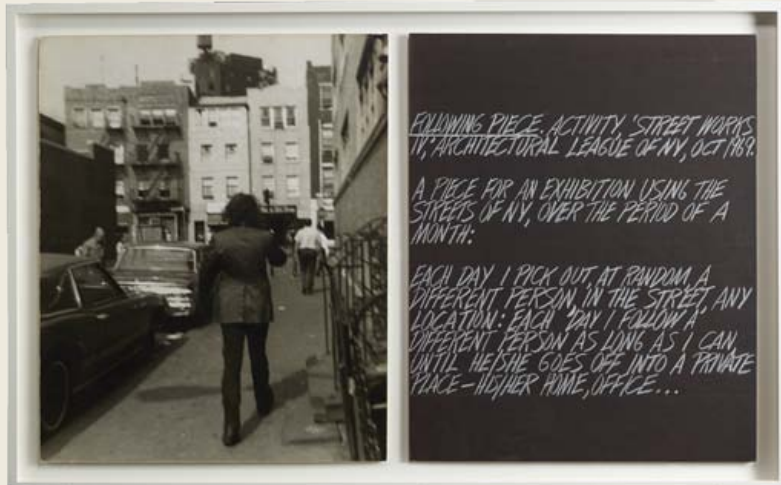 FOLLOWING PIECE. ACTIVITY, 'STREET WORKS
IV,' ARCHITECTURAL LEAGUE OF NY, OCT 1969.
A PIECE FOR AN EXHIBITION USING THE
STREETS OF NY, OVER THE PERIOD OF A
MONTH:
EACH DAY I PICK OUT, AT RANDOM, A
DIFFERENT PERSON, IN THE STREET, ANY
LOCATION: EACH DAY I FOLLOW A
DIFFERENT PERSON AS LONG AS I CAN,
UNTIL HE/SHE GOES OFF INTO A PRIVATE
PLACE – HIS/HER HOME, OFFICE...